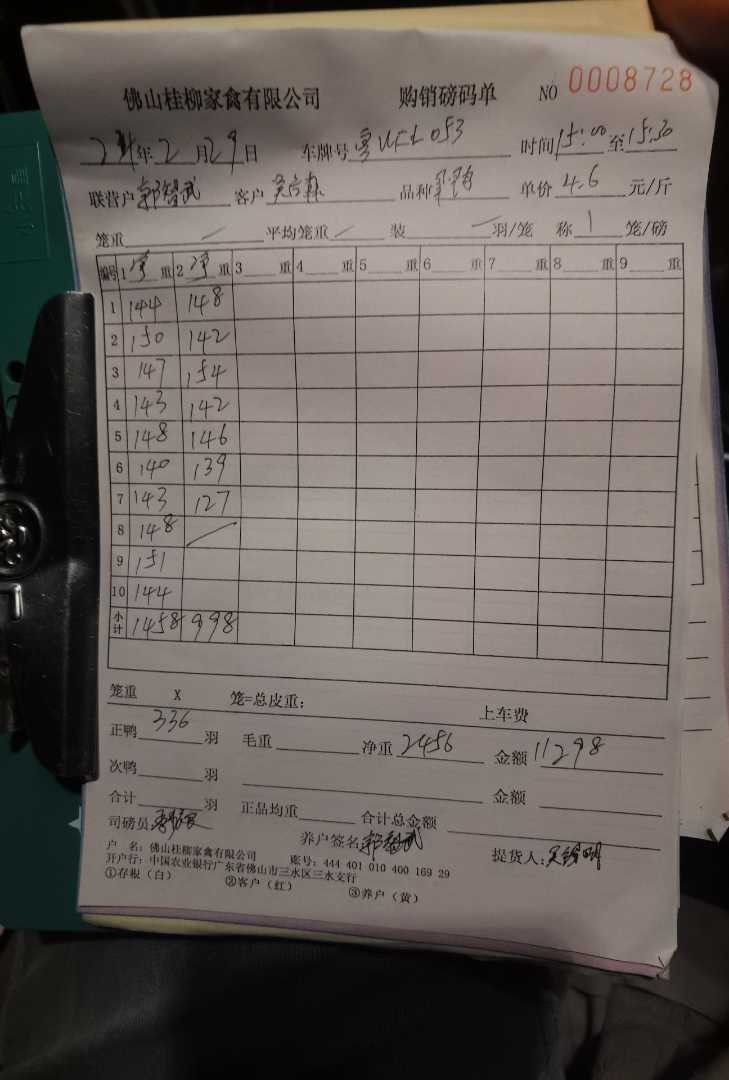 佛山桂柳家禽有限公司 购销磅码单 NO 0008728
24年2月29日 车牌号 粤 053 时间15:00至15:30
联营户 郭智武 客户 品种 单价 4.6 元/斤
笼重 / 平均笼重 / 装 一 羽/笼 称 1 笼/磅
编号 1 净 重 2 净 重 3 重 4 重 5 重 6 重 7 重 8 重 9 重
1 144 148
2 150 142
3 147 154
4 143 142
5 148 146
6 140 139
7 143 127
8 148 /
9 151
10 144
小计 1458 998
笼重 X 笼=总皮重: 上车费
正鸭 336 羽 毛重 净重 2456 金额 11298
次鸭 羽 金额
合计 羽 正品均重 合计总金额
司磅员 养户签名 郭智武 提货人:
户 名: 佛山桂柳家禽有限公司 账号: 444 401 010 400 169 29
开户行: 中国农业银行广东省佛山市三水区三水支行
①存根(白) ②客户(红) ③养户(黄)